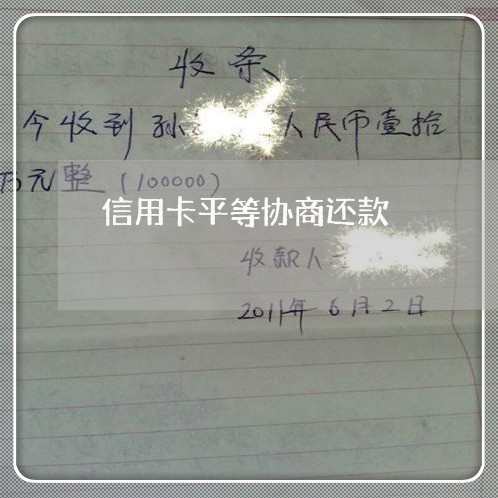 收条
今收到孙 人民币壹拾
万元整(100000)
信用卡平等协商还款
收款人
2011年6月2日